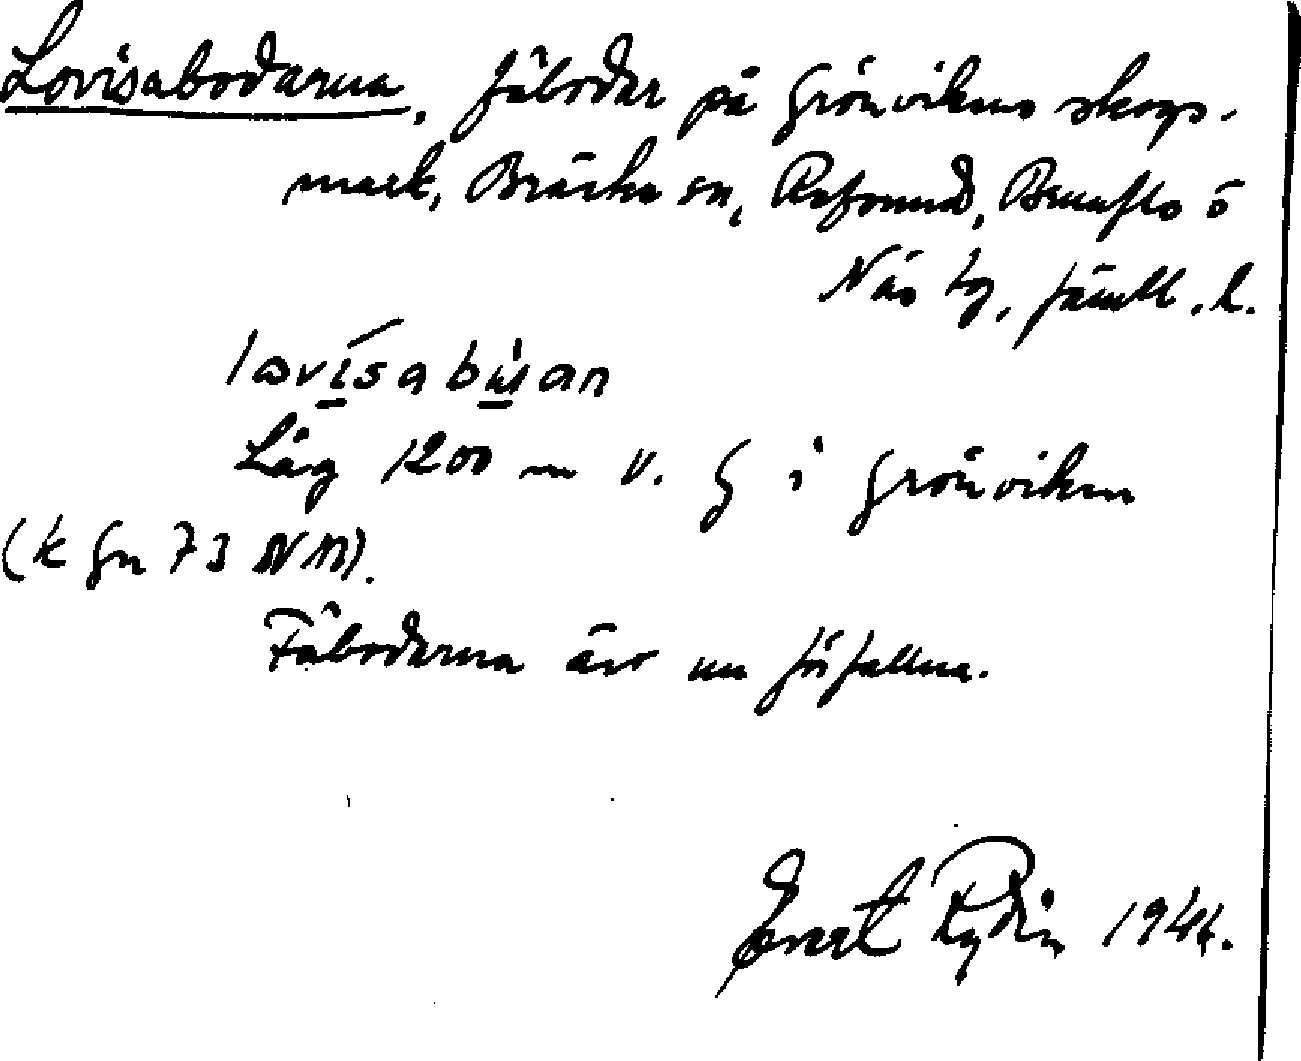 Lovisabodarna, fäbodar på Grönvikens skogs-
mark, Bräcke sn, Refsund, Brunflo o
Näs tg, Jämtl. l.
Låg 1200 m v. g i Grönviken
(k gn 73 NM).
Fäbodarna äro nu förfallna.
Evert Rydin 1944.